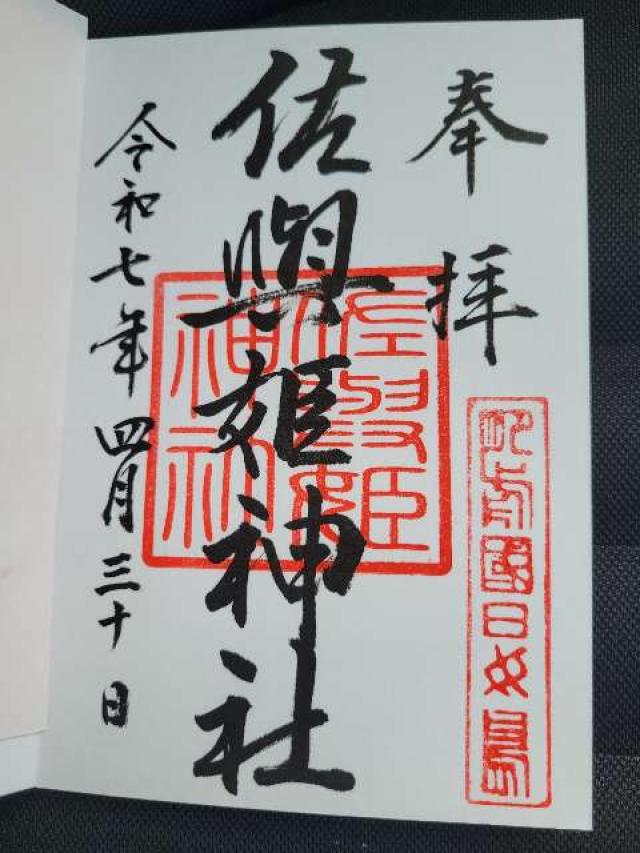 奉拝
肥前國日女島
佐與姫神社
令和七年四月三十日